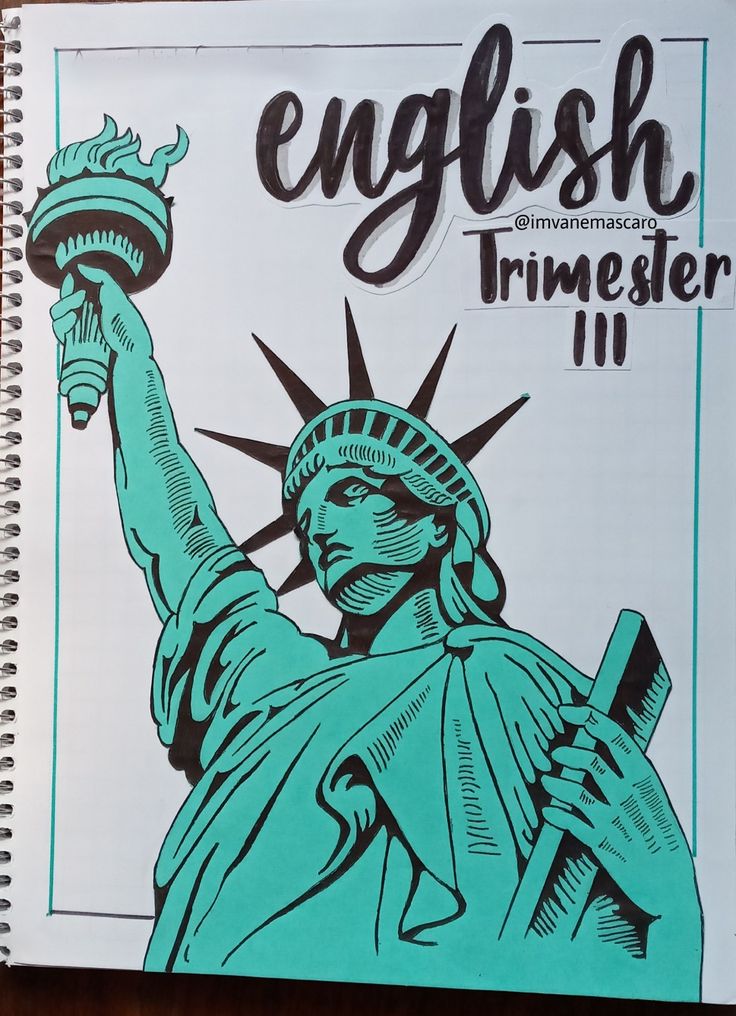 english
@imvanemascaro
Trimester
III